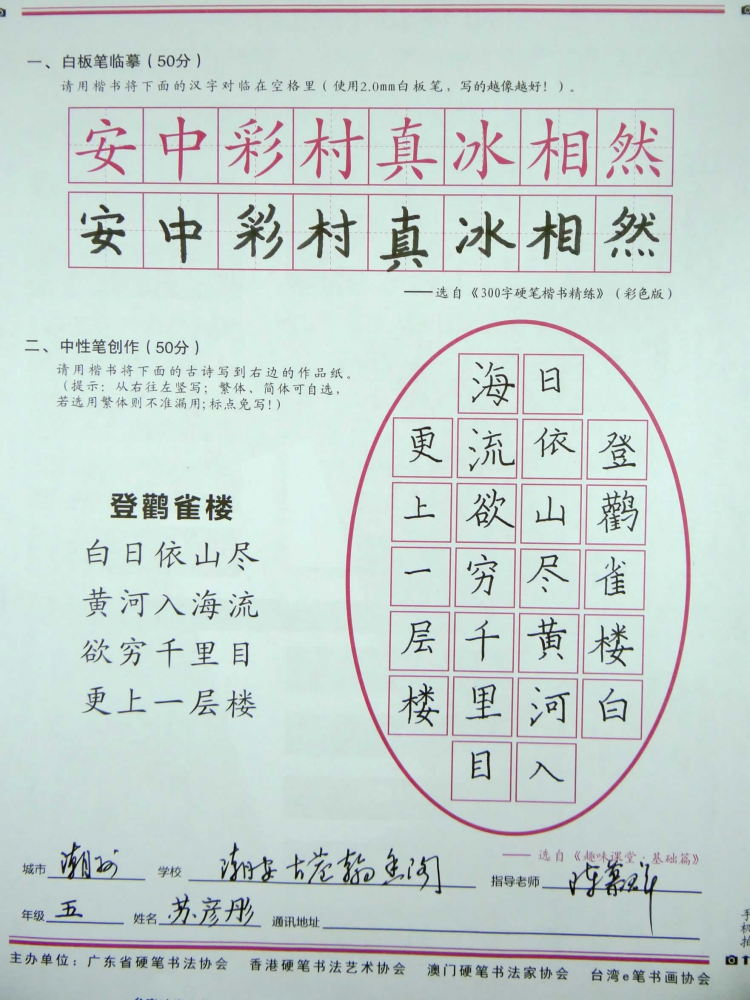 一、白板笔临摹（50分）
请用楷书将下面的汉字对临在空格里（使用2.0mm白板笔，写的越像越好！）。
安中彩村真冰相然
安中彩村真冰相然
——选自《300字硬笔楷书精练》（彩色版）
二、中性笔创作（50分）
请用楷书将下面的古诗写到右边的作品纸。
（提示：从右往左竖写；繁体、简体可自选，
若选用繁体则不准漏用；标点免写！）
登鹳雀楼
白日依山尽
黄河入海流
欲穷千里目
更上一层楼
登鹳雀楼白
日依山尽黄河入
海流欲穷千里目
更上一层楼
——选自《趣味课堂·基础篇》
城市 潮州 学校 潮安古巷翰墨阁 指导老师
年级 五 姓名 苏彦彤 通讯地址
主办单位：广东省硬笔书法协会 香港硬笔书法艺术协会 澳门硬笔书法家协会 台湾e笔书画协会